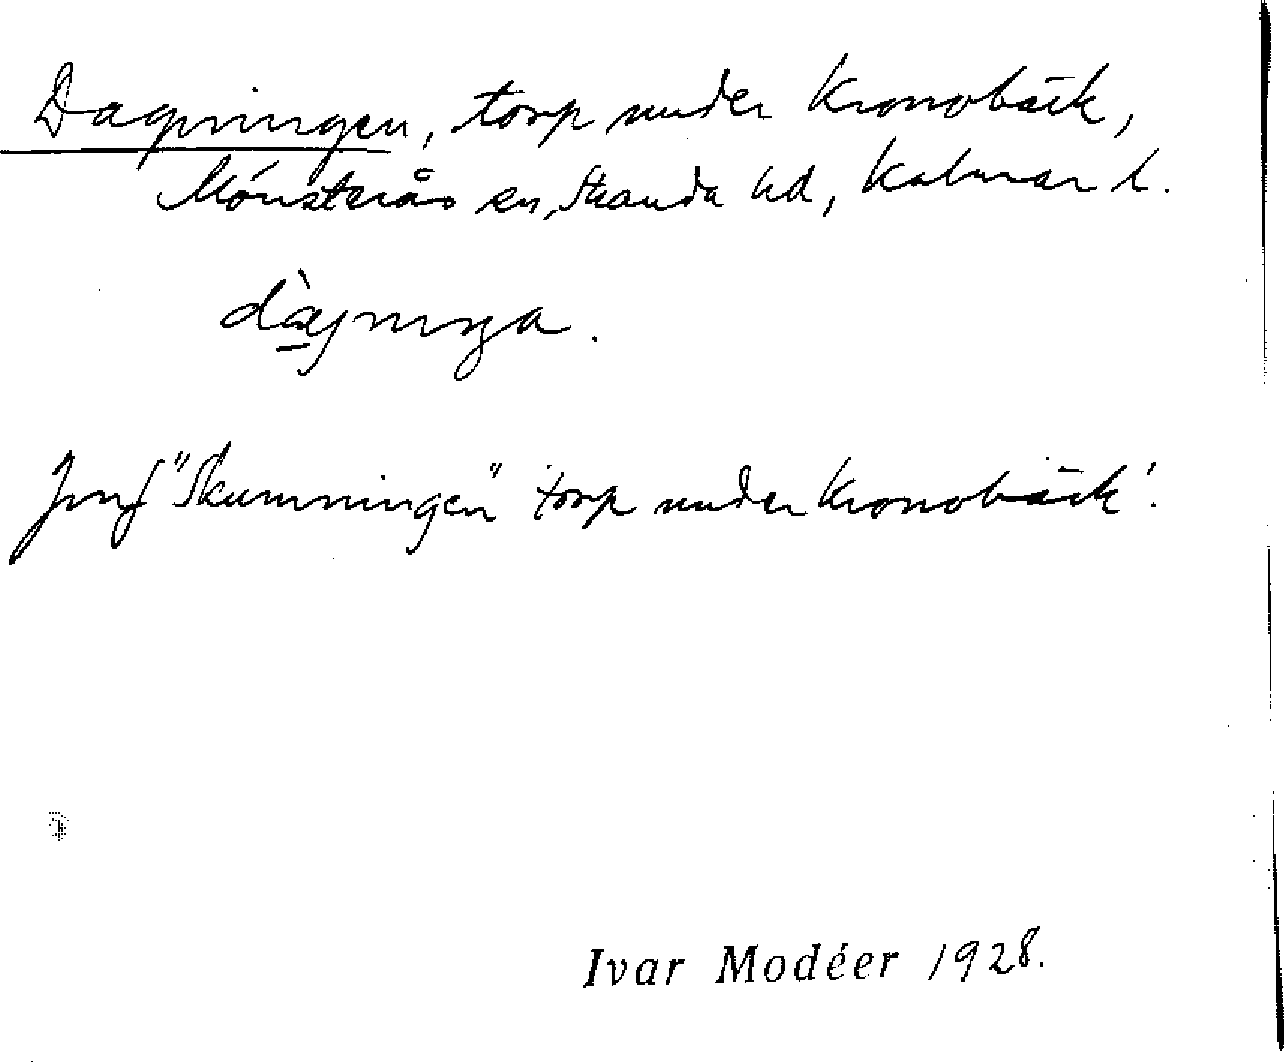 Dagningen, torp under Kronobäck,
Mönsterås sn, Stranda hd, Kalmar l.
Jmf "Skumningen" torp under Kronobäck!
Ivar Modéer 1928.